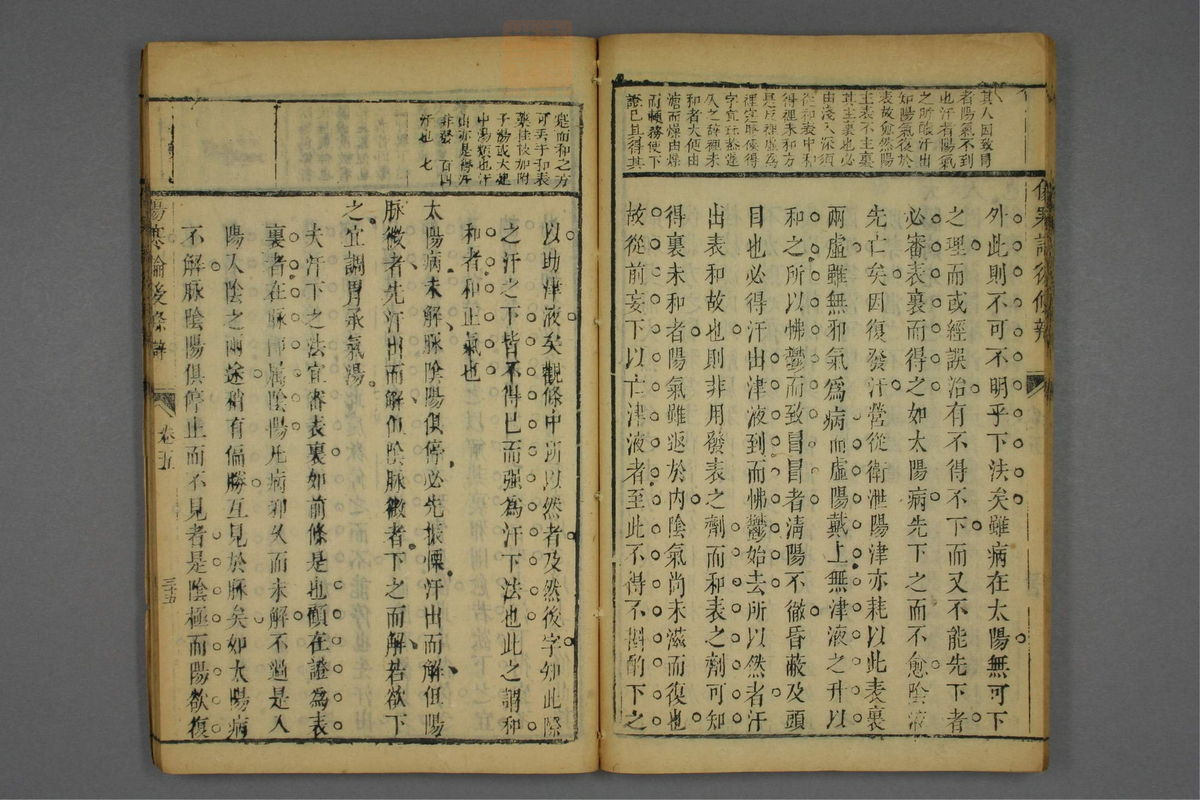 外此則不可不明乎下法矣雖病在太陽無可下
之理而或經誤治有不得不下而又不能先下者
必審表裏而得之如太陽病先下之而不愈陰液
先亡矣因復發汗營從衛泄陽津亦耗以此表裏
兩虛雖無邪氣為病而虛陽戴上無津液之升以
和之所以怫鬱而致冒冒者清陽不徹昏蔽及頭
目也必得汗出津液到而怫鬱始去所以然者汗
出表和故也則非用發表之劑而和表之劑可知
得裏未和者陽氣雖返於內陰氣尚未滋而復也
故從前妄下以亡津液者至此不得不斟酌下之
其人因致冒
者陽氣不到
也汗者陽氣
之所釀汗出
如陽氣復於
表故愈然陽
主表不主裏
其主裏也必
由淺入深須
從和表中和
得裡未和方
是反裡虛為
裡字眼候得
字宜玩
久之辭裡未
和者大便由
溏而燥由燥
而
證已具得其
寬而和之方
可委于和表
藥桂枝加附
子湯或大建
中湯類也汗
出亦是得汗
非發 百四
汗也 七
以助津液矣觀條中所以然者及然後字知此際
之汗之下皆不得已而强為汗下法也此之謂和
和者和正氣也
太陽病未解脉陰陽俱停必先振慄汗出而解但陽
脉微者先汗出而解但陰脉微者下之而解若欲下
之宜調胃承氣湯
夫汗下之法宜審表裏如前條是也顧在證為表
裏者在脉即屬陰陽凡病邪久而未解不過是入
陽入陰之兩途稍有偏勝互見於脉矣如太陽病
不解脉陰陽俱停止而不見者是陰極而陽欲復
傷寒論後條辨
卷五
三十五